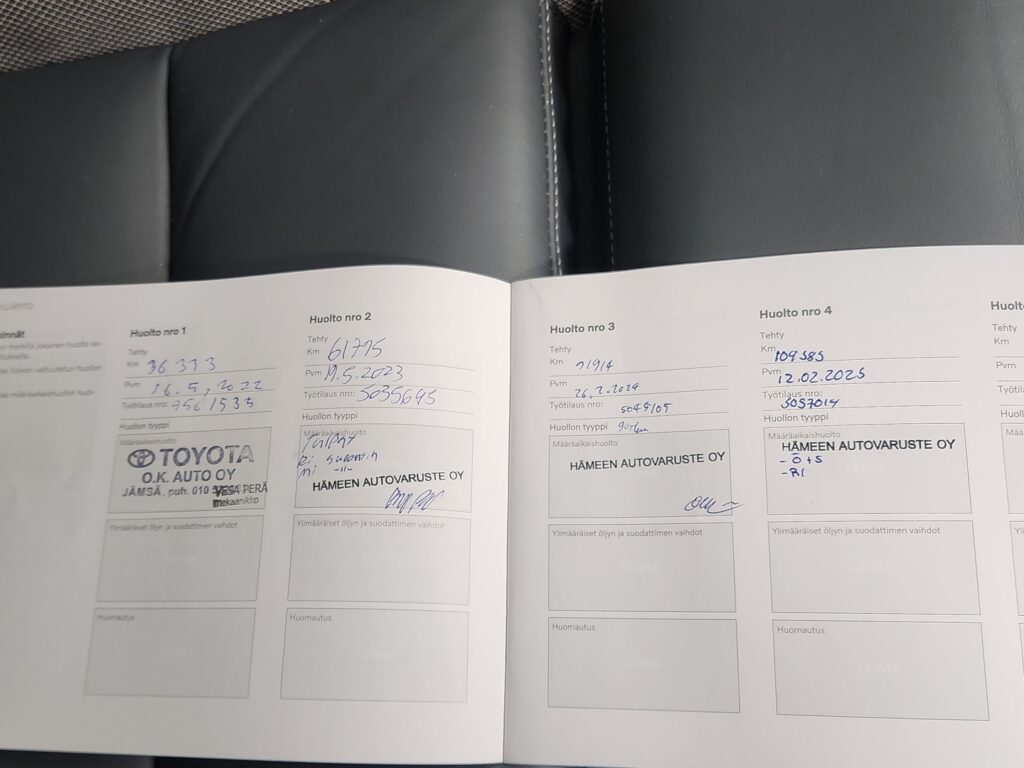 Huolto nro 1
Tehty
Km 36 333
Pvm 16.5.2022
Työtilaus nro: 9561535
Huollon tyyppi
Määräaikaishuolto
TOYOTA
O.K. AUTO OY
JÄMSÄ, puh. 010
VESA PERÄ
mekaanikko
Ylimääräiset öljyn ja suodattimen vaihdot
Huomautus
Huolto nro 2
Tehty
Km 61775
Pvm 19.5.2023
Työtilaus nro: 5035695
Huollon tyyppi
Määräaikaishuolto
HÄMEEN AUTOVARUSTE OY
Ylimääräiset öljyn ja suodattimen vaihdot
Huomautus
Huolto nro 3
Tehty
Km
Pvm 26.2.2024
Työtilaus nro: 5045105
Huollon tyyppi
Määräaikaishuolto
HÄMEEN AUTOVARUSTE OY
Ylimääräiset öljyn ja suodattimen vaihdot
Huomautus
Huolto nro 4
Tehty
Km 109585
Pvm 12.02.2025
Työtilaus nro: 5057014
Huollon tyyppi
Määräaikaishuolto
HÄMEEN AUTOVARUSTE OY
- Ö + S
- RI
Ylimääräiset öljyn ja suodattimen vaihdot
Huomautus
Tehty
Km
Pvm